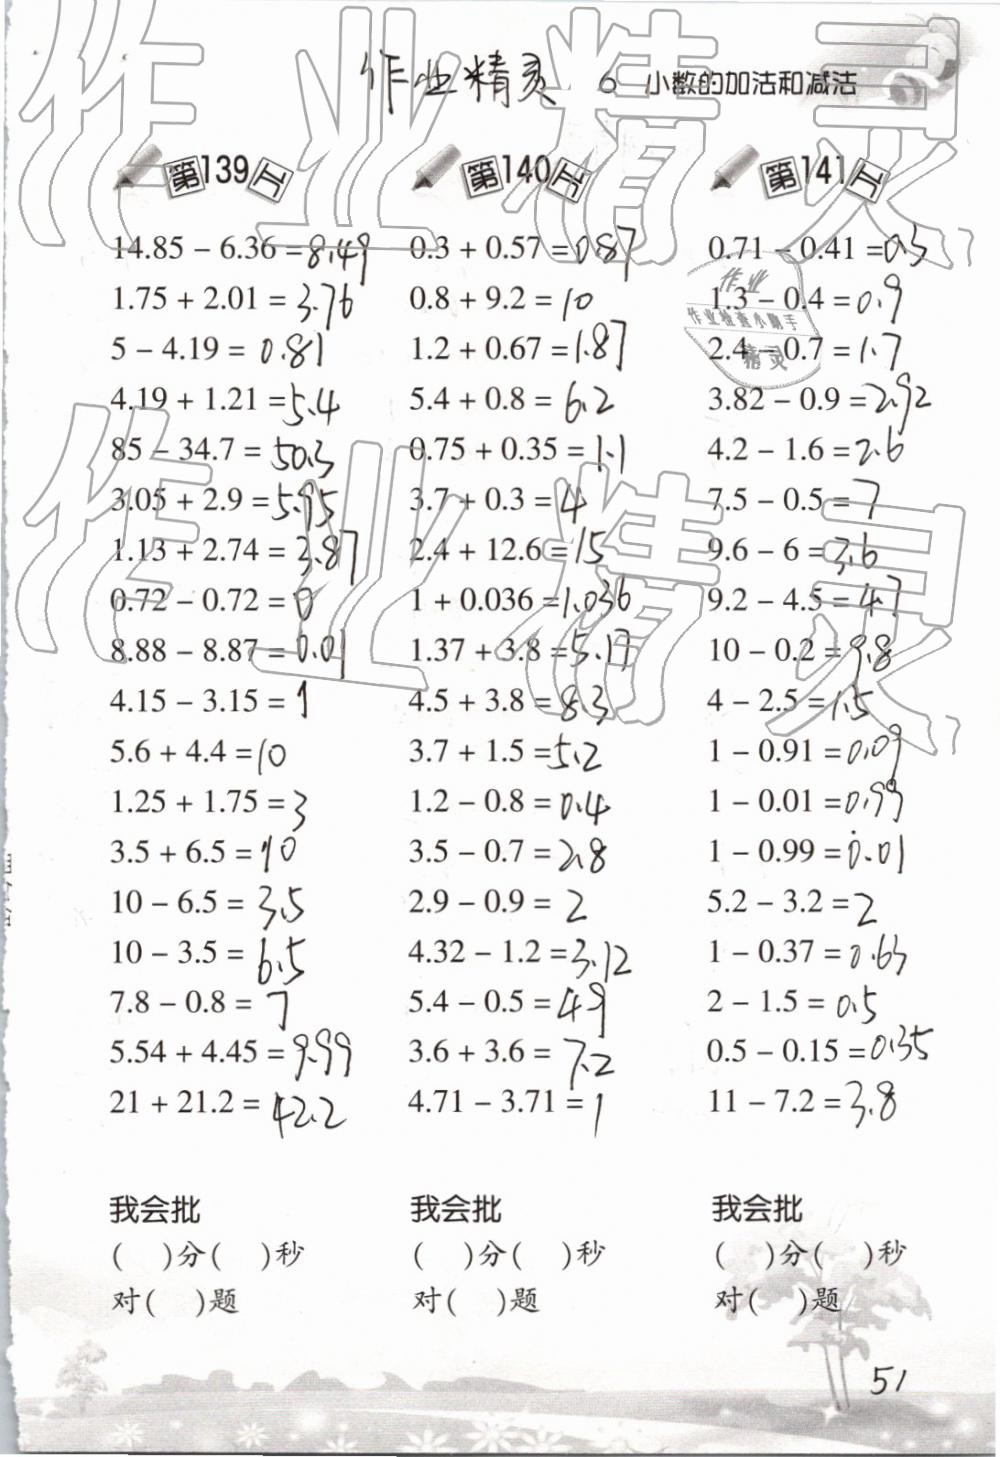 作业精灵
6 小数的加法和减法
第139天
14.85 − 6.36 = 8.49
1.75 + 2.01 = 3.76
5 − 4.19 = 0.81
4.19 + 1.21 = 5.4
85 − 34.7 = 50.3
3.05 + 2.9 = 5.95
1.13 + 2.74 = 3.87
0.72 − 0.72 = 0
8.88 − 8.87 = 0.01
4.15 − 3.15 = 1
5.6 + 4.4 = 10
1.25 + 1.75 = 3
3.5 + 6.5 = 10
10 − 6.5 = 3.5
10 − 3.5 = 6.5
7.8 − 0.8 = 7
5.54 + 4.45 = 9.99
21 + 21.2 = 42.2
我会批
(   )分(   )秒
对(   )题
第140天
0.3 + 0.57 = 0.87
0.8 + 9.2 = 10
1.2 + 0.67 = 1.87
5.4 + 0.8 = 6.2
0.75 + 0.35 = 1.1
3.7 + 0.3 = 4
2.4 + 12.6 = 15
1 + 0.036 = 1.036
1.37 + 3.8 = 5.17
4.5 + 3.8 = 8.3
3.7 + 1.5 = 5.2
1.2 − 0.8 = 0.4
3.5 − 0.7 = 2.8
2.9 − 0.9 = 2
4.32 − 1.2 = 3.12
5.4 − 0.5 = 4.9
3.6 + 3.6 = 7.2
4.71 − 3.71 = 1
我会批
(   )分(   )秒
对(   )题
第141天
0.71 − 0.41 = 0.3
1.3 − 0.4 = 0.9
2.4 − 0.7 = 1.7
3.82 − 0.9 = 2.92
4.2 − 1.6 = 2.6
7.5 − 0.5 = 7
9.6 − 6 = 3.6
9.2 − 4.5 = 4.7
10 − 0.2 = 9.8
4 − 2.5 = 1.5
1 − 0.91 = 0.09
1 − 0.01 = 0.99
1 − 0.99 = 0.01
5.2 − 3.2 = 2
1 − 0.37 = 0.63
2 − 1.5 = 0.5
0.5 − 0.15 = 0.35
11 − 7.2 = 3.8
我会批
(   )分(   )秒
对(   )题
51
作业精灵
作业精灵
作业
作业检查小助手
精灵